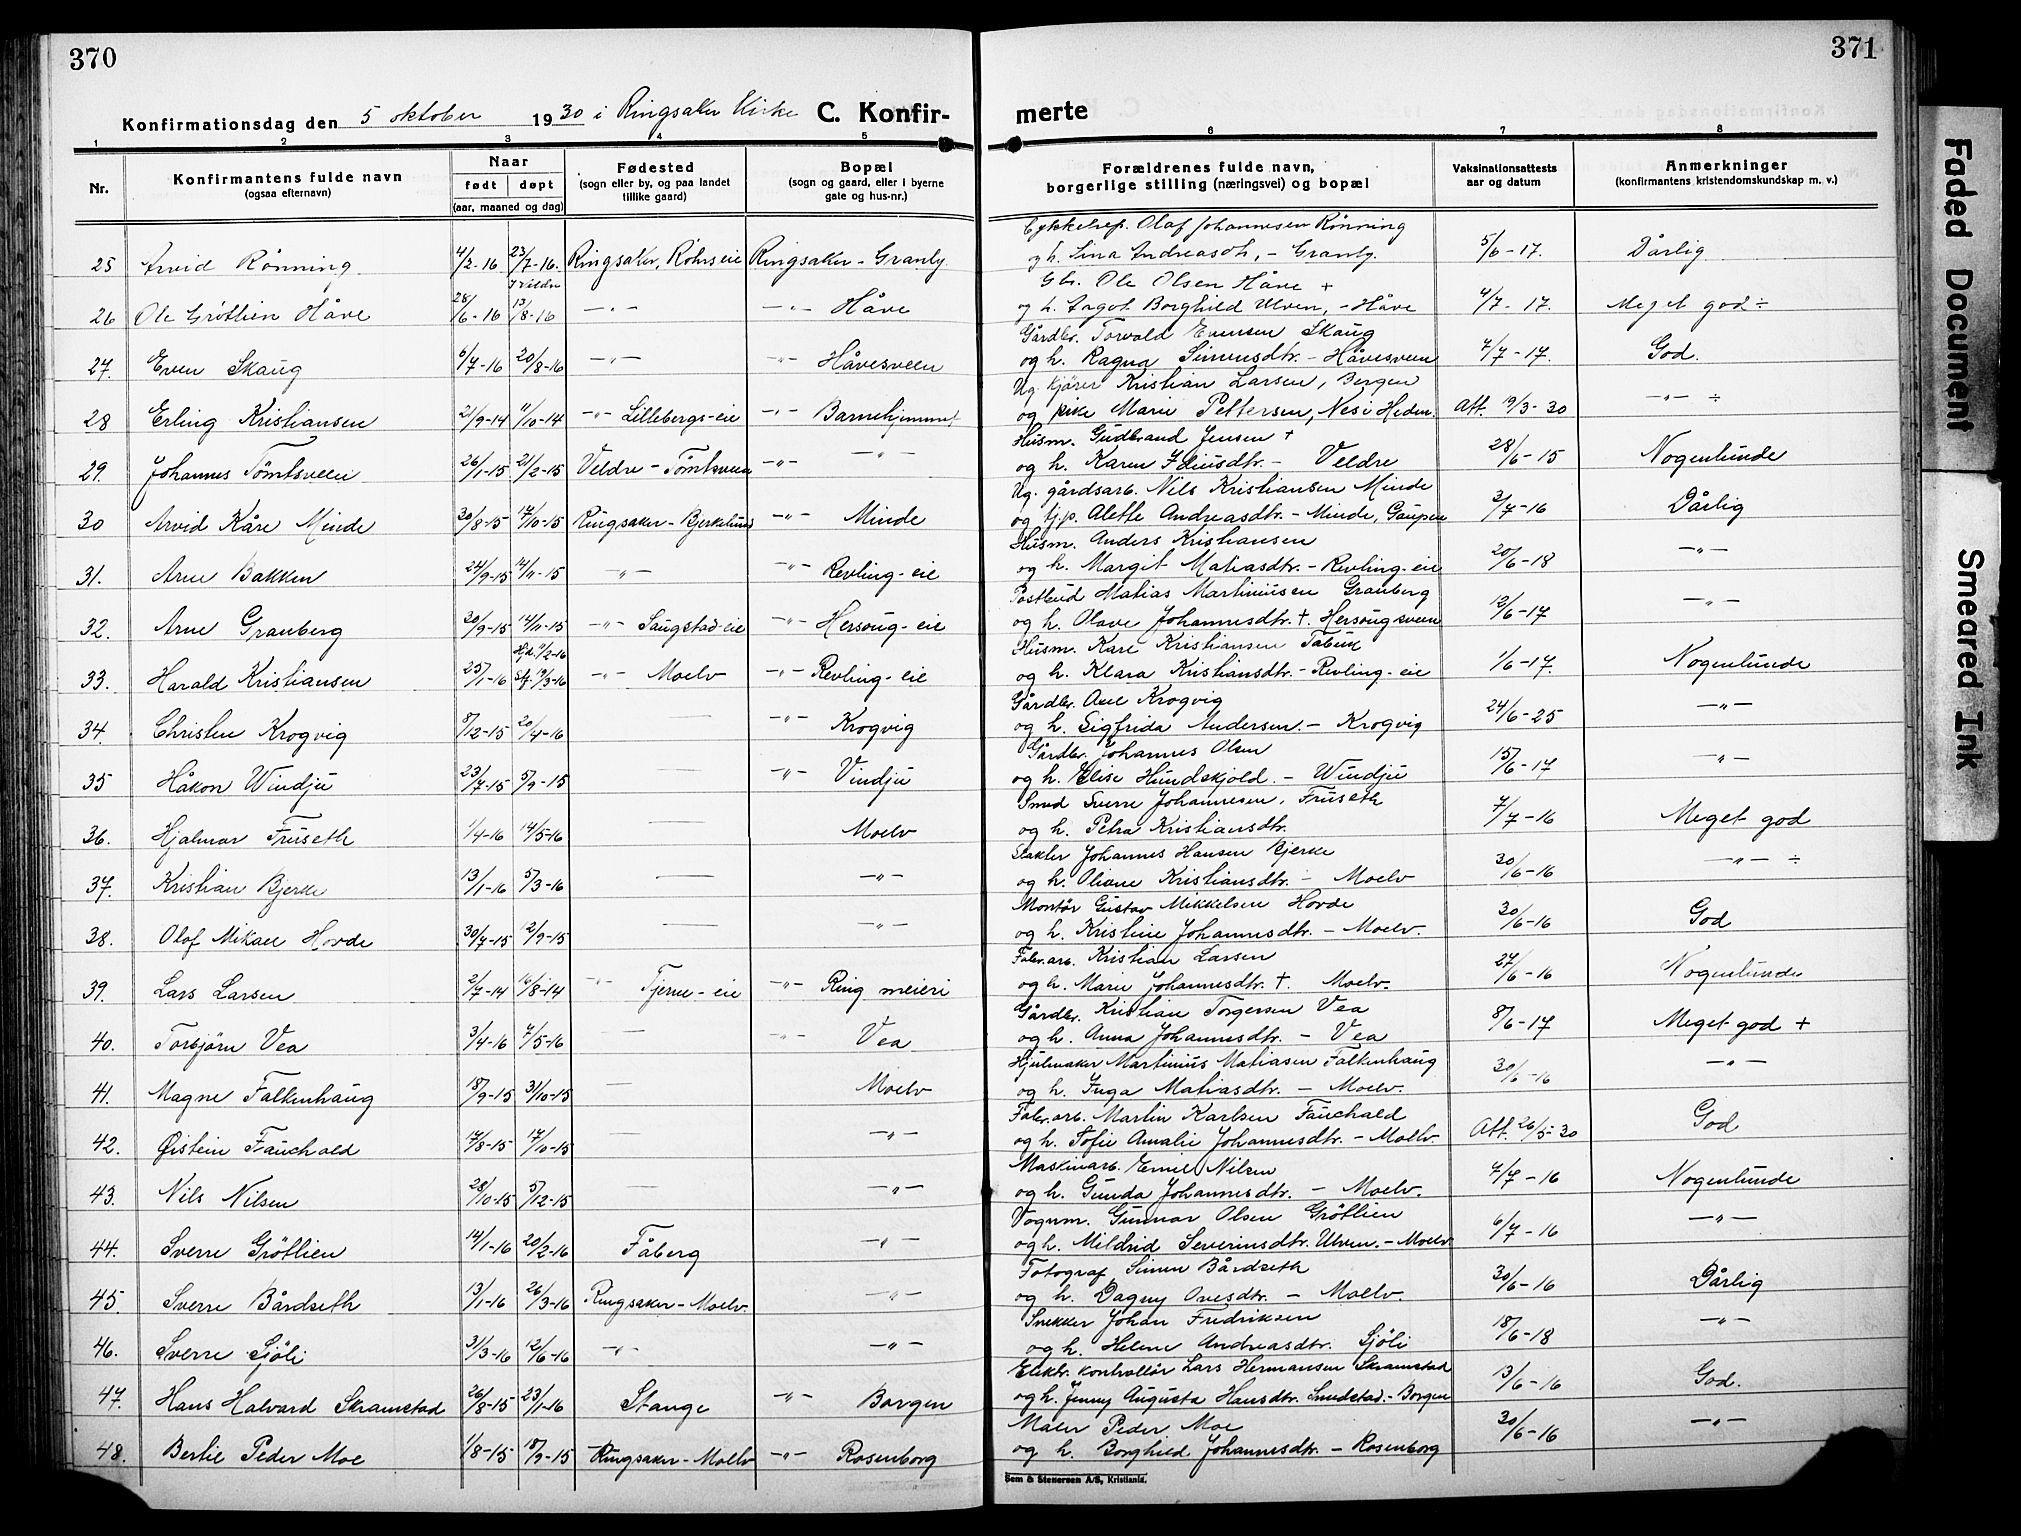 370
Konfirmationsdag den 5 oktober 1930 i Ringsaker Kirke C. Konfir-
1 2 3 4 5
Nr. Konfirmantens fulde navn (ogsaa efternavn) Naar født døpt (aar, maaned og dag) Fødested (sogn eller by, og paa landet tillike gaard) Bopæl (sogn og gaard, eller i byerne gate og hus-nr.)
25 Arvid Rønning 4/2-16 23/7-16. Ringsaker, Rohrs eie Ringsaker - Granby
26 Ole Grøtlien Håve 28/6-16 I Veldre 13/8-16 -"- -"- Håve
27. Even Skaug 6/7-16 20/8-16 -"- -"- Håvesveen
28 Erling Kristiansen 21/9-14 11/10-14 -"- Lillebergs-eie -"- Barnehjemmet
29. Johannes Tømtsveen 26/1-15 21/2-15 Veldre - Tømtsveen -"- -"-
30 Arvid Kåre Minde 30/8-15 17/10-15 Ringsaker - Bjerkelund -"- Minde
31. Arne Bakken 24/9-15 14/11-15 -"- -"- Revling-eie
32. Arne Granberg 20/9-15 14/11-15 -"- Saugstad-eie -"- Hersoug-eie
33. Harald Kristiansen 25/1-16 Hjd. 11/2-16 Stf. 19/3-16 -"- Moelv -"- Revling-eie
34. Christen Krogvig 8/12-15 20/4-16 — -"- Krogvig
35 Håkon Windju 23/7-15 5/9-15 — -"- Vindju
36. Hjalmar Fruseth 1/4-16 14/5-16 — Moelv
37. Kristian Bjerke 13/1-16 5/3-16 — -"-
38. Olof Mikael Horde 30/7-15 12/9-15 — -"-
39. Lars Larsen 2/7-14 16/8-14 -"- Tjerne-eie -"- Ring meieri
40. Torbjørn Vea 3/4-16 7/5-16 — -"- Vea
41. Magne Falkenhaug 18/9-15 31/10-15 — Moelv
42. Øistein Fauchald 17/8-15 17/10-15 — -"-
43. Nils Nilsen 28/10-15 5/12-15 — -"-
44. Sverre Grøtlien 14/1-16 20/2-16 Fåberg -"-
45. Sverre Bårdseth 13/1-16 26/3-16 Ringsaker - Moelv. -"-
46. Sverre Sjøli 31/3-16 12/6-16 -"- -"-
47. Hans Halvard Skramstad 26/8-15 23/1-16 Stange -"- Borgen
48. Bertil Peder Moe 1/8-15 18/9-15 Ringsaker - Moelv -"- Rosenborg
371
merte
6 7 8
Forældrenes fulde navn, borgerlige stilling (næringsvei) og bopæl Vaksinationsattests aar og datum Anmerkninger (konfirmantens kristendomskundskap m. v.)
Cykkelrep. Olaf Johannesen Rønning
og h. Lina Andreasdh, - Granby. 5/6-17. Dårlig
Gbr. Ole Olsen Håve +
og h. Aagot Borghild Ulven, - Håve 4/7-17. Meget god ÷
Gårdbr. Torvald Evensen Skaug
og h. Ragna Simensdtr. - Håvesveen 4/7-17. God.
Ug. kjører Kristian Larsen, Bergen
og pike Marie Pettersen, Nes i Hedm. Att. 19/3-30 -"- ÷
Husm. Gudbrand Jensen +
og h. Karen Eliusdtr. - Veldre 28/6-15 Nogenlunde
Ug. gårdsarb. Nils Kristiansen Minde
og tj.p. Alette Andreasdtr. - Minde, Gaupen 3/7-16 Dårlig
Husm. Anders Kristiansen
og h. Margit Matiasdtr. - Revling-eie 20/6-18 -"-
Postbud Matias Martiniusen Granberg
og h. Olave Johannesdtr. +. Hersougsveen 12/6-17 -"-
Husm. Kare Kristiansen
og h. Klara Kristiansdtr. - Revling-eie 1/6-17. Nogenlunde
Gårdbr. Axel Krogvig
og h. Sigfrida Andersen. - Krogvig 24/6-25 -"-
Gårdbr. Johannes Olsen
og h. Elise Hundskjold. - Windju 15/6-17 -"-
Smed Sverre Johannesen, Fruseth
og h. Petra Kristiansdtr. 7/7-16 Meget god
Slakter Johannes Hansen Bjerke
og h. Oliane Kristiansdtr. - Moelv 30/6-16 -"- ÷
Montør Gustav Mikkelsen Horde
og h. Kristine Johannesdtr. - Moelv. 30/6-16 God
Fabr.arb. Kristian Larsen
og h. Marie Johannesdtr. +. Moelv. 27/6-16 Nogenlunde
Gårdbr. Kristian Torgersen Vea
og h. Anna Johannesdtr. - Vea 8/6-17 Meget god +
Hjulmaker Martinius Matiasen Falkenhaug
og h. Inga Matiasdtr. - Moelv. 30/6-16 -"-
Fabr.arb. Martin Karlsen Fauchald
og h. Sofie Amalie Johannesdtr. - Moelv Att. 26/5-30 God
Maskinarb. Emil Nilsen
og h. Gunda Johannesdtr. - Moelv. 4/7-16 Nogenlunde
Vognm. Gunnar Olsen Grøtlien
og h. Mildrid Severinsdtr. Ulven. - Moelv 6/7-16 -"-
Fotograf Simen Bårdseth
og h. Dagny Ovesdtr. - Moelv. 30/6-16 Dårlig
Snekker Johan Fredriksen
og h. Helene Andreasdtr. Sjøli 18/6-18 -"-
Elektr. kontrollør Lars Hermansen Skramstad
og h. Jenny Augusta Hansdtr. Smedstad. - Borgen 13/6-16 God.
Maler Peder Moe
og h. Borghild Johannesdtr. - Rosenborg 30/6-16 -"-
Sem & Stenersen A/S, Kristiania.
Faded Document
Smeared Ink